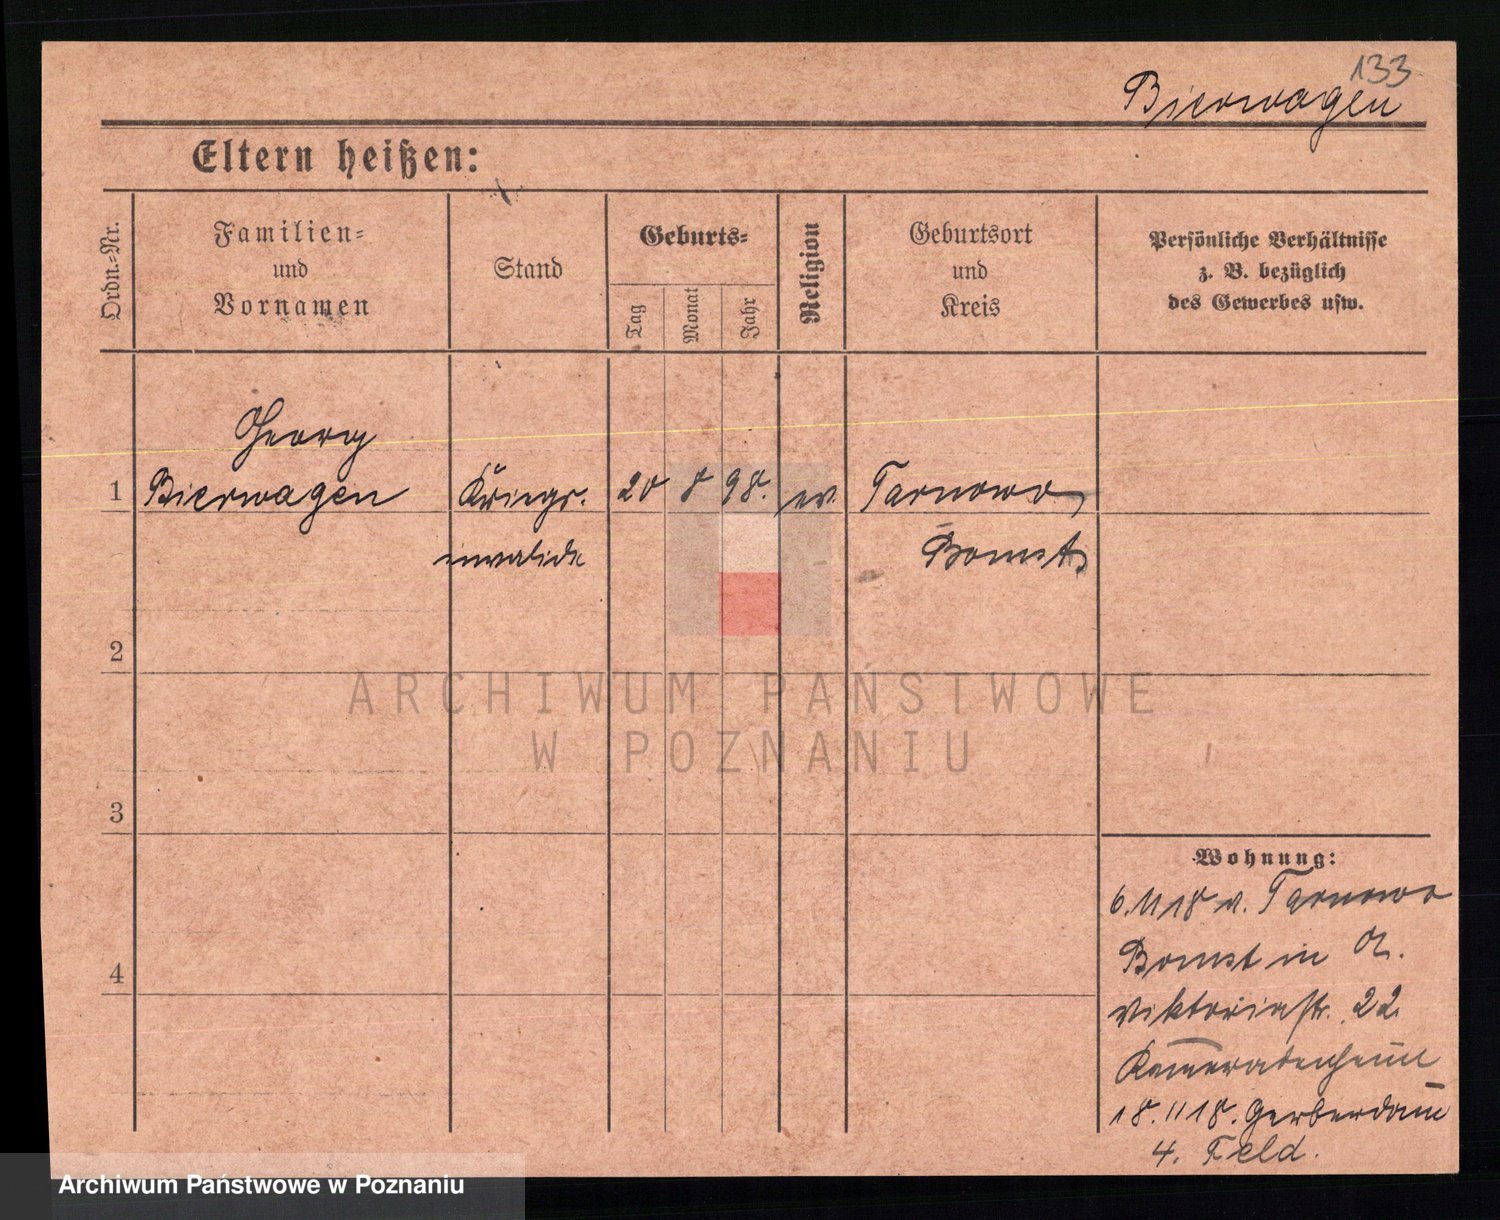 133
Bierwagen
Eltern heißen:
Ordn.-Nr.
Familien-
und
Vornamen
Stand
Geburts-
Tag
Monat
Jahr
Religion
Geburtsort
und
Kreis
Persönliche Verhältnisse
z. B. bezüglich
des Gewerbes usw.
Georg
1 Bierwagen Kriegs. 20 8 98. ev. Tarnowo,
invalide Bomst,
2
ARCHIWUM PAŃSTWOWE
W POZNANIU
3
Wohnung:
6. 11 18 v. Tarnowo
4
Bomst in
Viktoriastr. 22
Kameradenheim
18. 11 18. Gerberdamm
4. Feld.
Archiwum Państwowe w Poznaniu